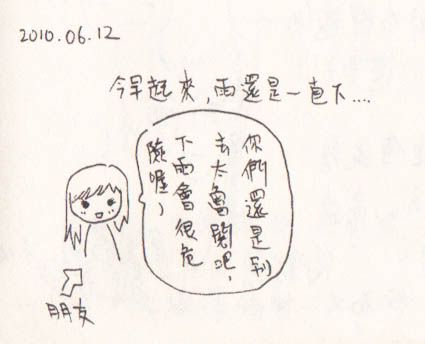 2010.06.12
今早起來，雨還是一直下....
你們還是別
去太魯閣吧，
下雨會很危
險喔，
朋友